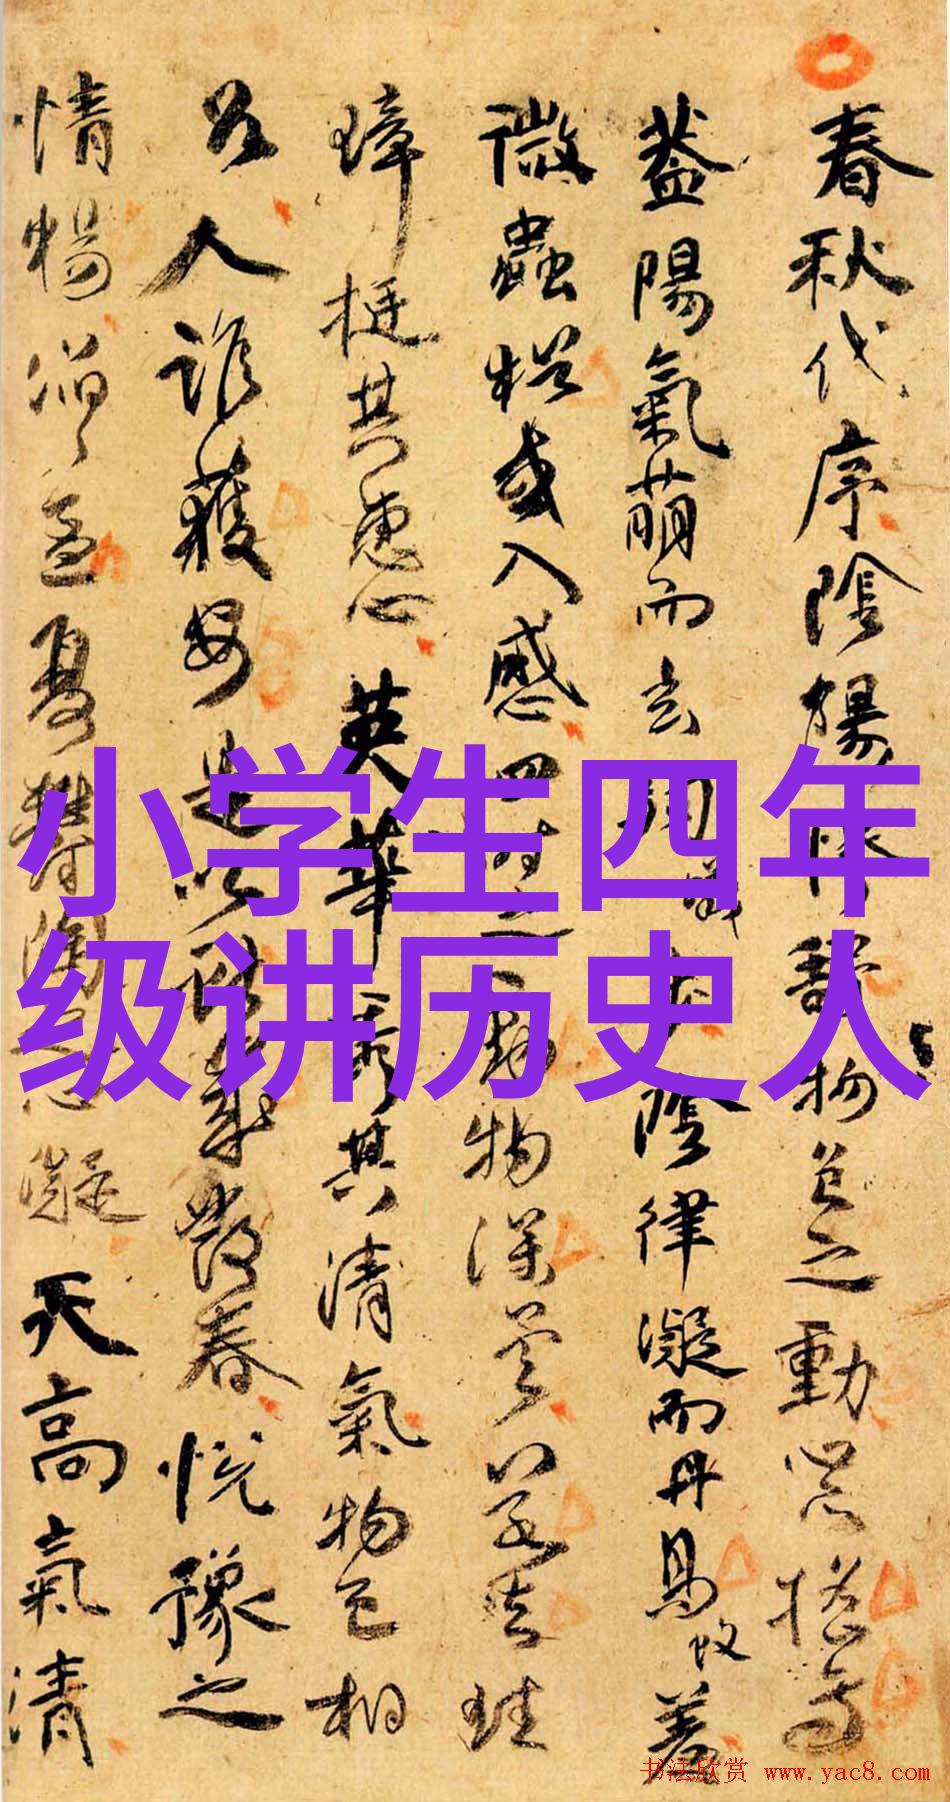 春秋代序陰陽慘舒物色之動心亦搖焉
蓋陽氣萌而玄駒陰律凝而丹鳥羞
微蟲猶或入感四時之動物深矣若夫珪
璋挺其惠心英華秀其清氣物色相
召人誰獲安是以獻歲發春悅豫之
情暢滔〻孟夏鬱陶之心凝天高氣清
小学生四年
级讲历史人
书法欣赏 www.yac8.com